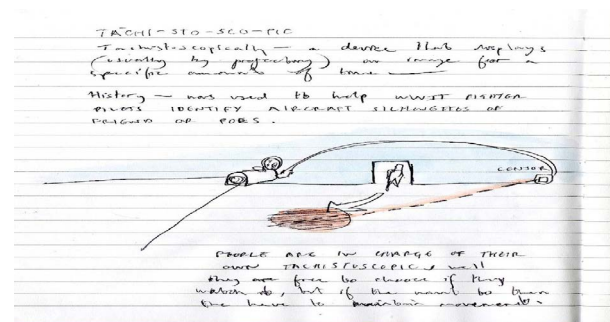 TACHI-STO-SCO-PIC
Tachistoscopically — a device that displays
(usually by projecting) an image for a
specific amount of time
History — was used to help WWII FIGHTER
PILOTS IDENTIFY AIRCRAFT SILHOUETTES OF
FRIEND OR FOES.
CENSOR
PEOPLE ARE IN CHARGE OF THEIR
OWN TACHISTOSCOPIC, well
they are free to choose if they
watch it, but if the want to then
the have to maintain movement.